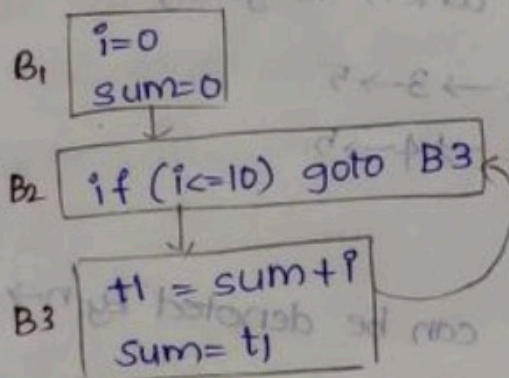 B1
i=0
sum=0
B2
if (i<=10) goto B3
B3
t1 = sum+i
sum= t1